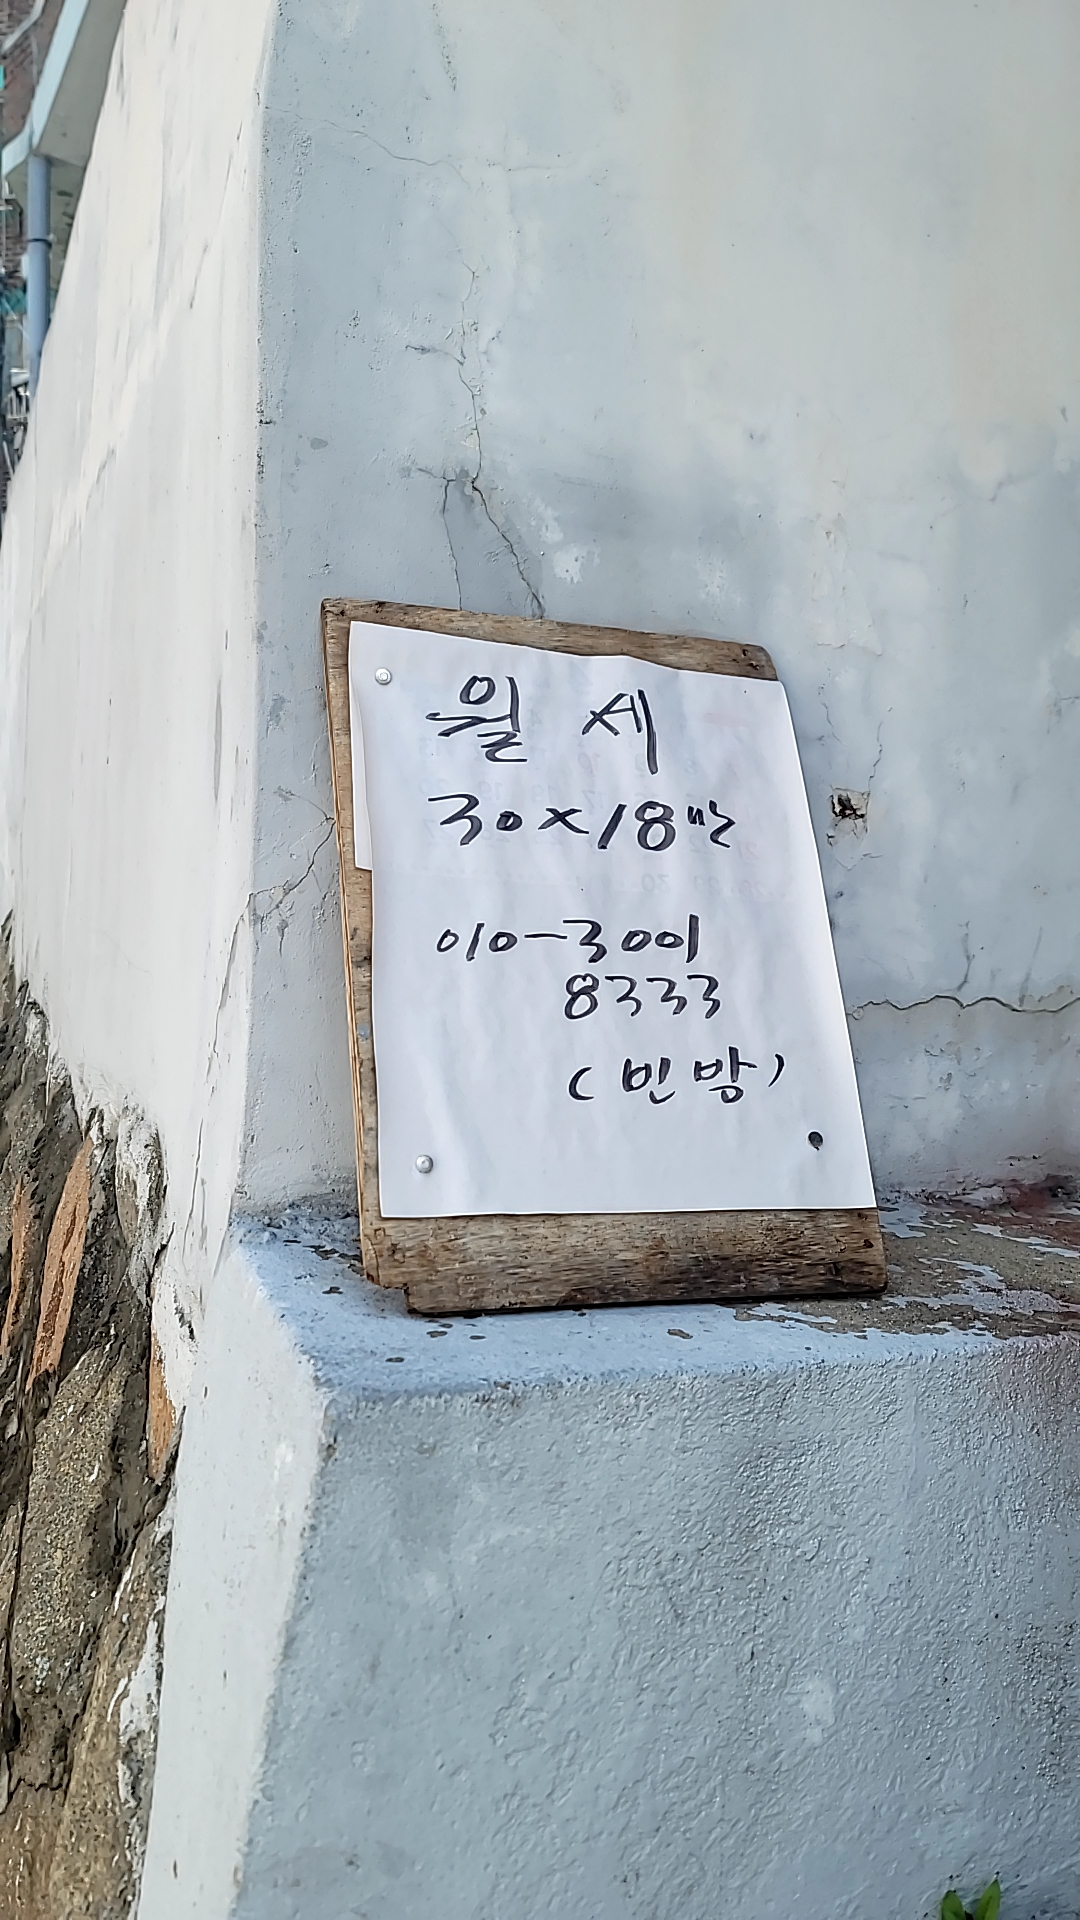 월 세
30×18만
010-3001
8333
(빈 방)